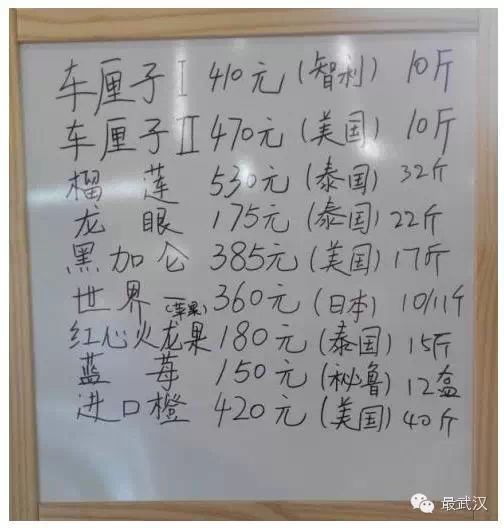 车厘子Ⅰ 410元(智利) 10斤
车厘子Ⅱ 470元(美国) 10斤
榴莲 530元(泰国) 32斤
龙眼 175元(泰国) 22斤
黑加仑 385元(美国) 17斤
世界一(苹果) 360元(日本) 10/11斤
红心火龙果 180元(泰国) 15斤
蓝莓 150元(秘鲁) 12盒
进口橙 420元(美国) 40斤
最武汉